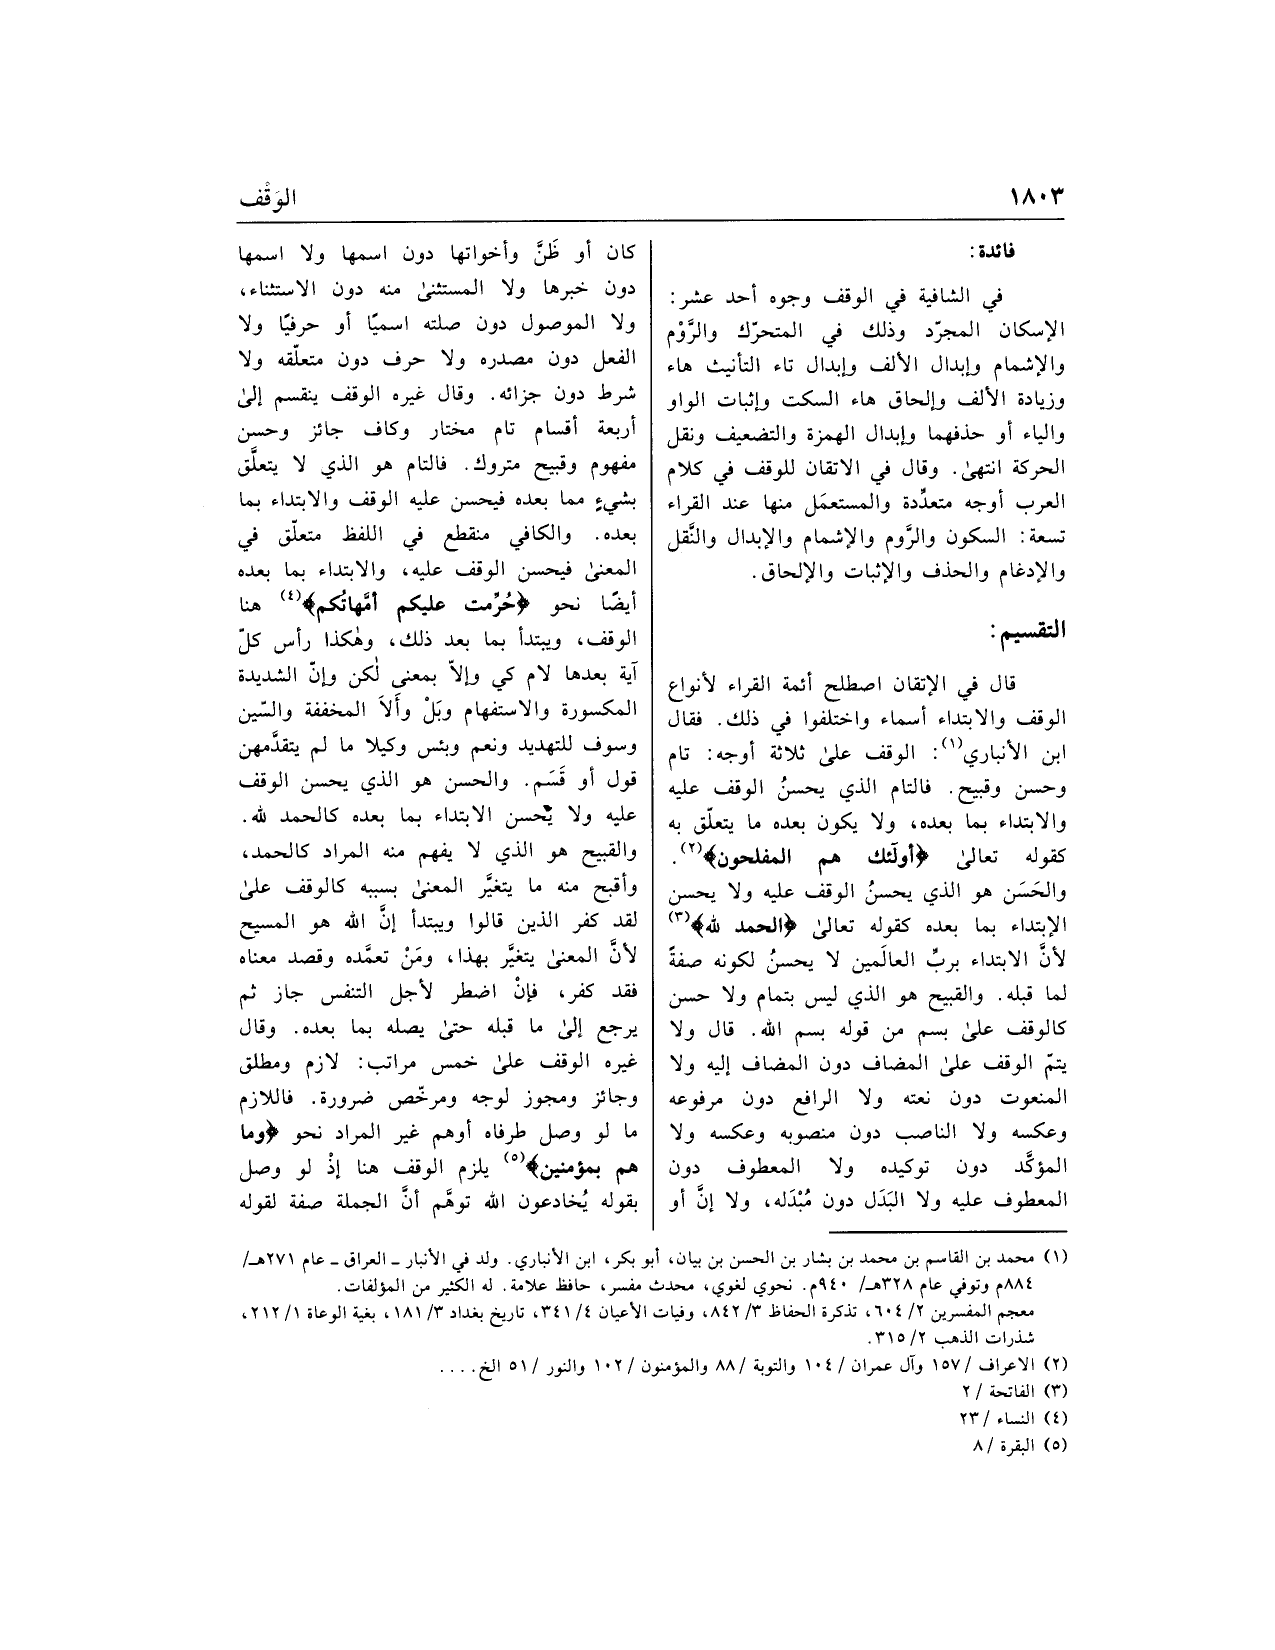 ١٨٠٣
الوَقْف
فائدة:
في الشافية في الوقف وجوه أحد عشر:
الإسكان المجرّد وذلك في المتحرّك والرَّوْم
والإشمام وإبدال الألف وإبدال تاء التأنيث هاء
وزيادة الألف وإلحاق هاء السكت وإثبات الواو
والياء أو حذفهما وإبدال الهمزة والتضعيف ونقل
الحركة انتهىٰ. وقال في الاتقان للوقف في كلام
العرب أوجه متعدِّدة والمستعمَل منها عند القراء
تسعة: السكون والرَّوم والإشمام والإبدال والنَّقل
والإدغام والحذف والإثبات والإلحاق.
التقسيم:
قال في الإتقان اصطلح أئمة القراء لأنواع
الوقف والابتداء أسماء واختلفوا في ذلك. فقال
ابن الأنباري(١): الوقف علىٰ ثلاثة أوجه: تام
وحسن وقبيح. فالتام الذي يحسنُ الوقف عليه
والابتداء بما بعده، ولا يكون بعده ما يتعلّق به
كقوله تعالىٰ ﴿أولَئك هم المفلحون﴾(٢).
والحَسَن هو الذي يحسنُ الوقف عليه ولا يحسن
الإبتداء بما بعده كقوله تعالىٰ ﴿الحمد لله﴾(٣)
لأنَّ الابتداء بربِّ العالَمين لا يحسنُ لكونه صفةً
لما قبله. والقبيح هو الذي ليس بتمام ولا حسن
كالوقف علىٰ بسم من قوله بسم الله. قال ولا
يتمّ الوقف علىٰ المضاف دون المضاف إليه ولا
المنعوت دون نعته ولا الرافع دون مرفوعه
وعكسه ولا الناصب دون منصوبه وعكسه ولا
المؤكَّد دون توكيده ولا المعطوف دون
المعطوف عليه ولا البَدَل دون مُبْدَله، ولا إنَّ أو
كان أو ظَنَّ وأخواتها دون اسمها ولا اسمها
دون خبرها ولا المستثنىٰ منه دون الاستثناء،
ولا الموصول دون صلته اسميًا أو حرفيًا ولا
الفعل دون مصدره ولا حرف دون متعلّقه ولا
شرط دون جزائه. وقال غيره الوقف ينقسم إلىٰ
أربعة أقسام تام مختار وكاف جائز وحسن
مفهوم وقبيح متروك. فالتام هو الذي لا يتعلَّق
بشيءٍ مما بعده فيحسن عليه الوقف والابتداء بما
بعده. والكافي منقطع في اللفظ متعلّق في
المعنىٰ فيحسن الوقف عليه، والابتداء بما بعده
أيضًا نحو ﴿حُرِّمت عليكم أمَّهاتُكم﴾(٤) هنا
الوقف، ويبتدأ بما بعد ذلك، وهٰكذا رأس كلّ
آية بعدها لام كي وإلاّ بمعنى لٰكن وإنّ الشديدة
المكسورة والاستفهام وبَلْ وأَلاَ المخففة والسّين
وسوف للتهديد ونعم وبئس وكيلا ما لم يتقدَّمهن
قول أو قَسَم. والحسن هو الذي يحسن الوقف
عليه ولا يَحسن الابتداء بما بعده كالحمد لله.
والقبيح هو الذي لا يفهم منه المراد كالحمد،
وأقبح منه ما يتغيَّر المعنىٰ بسببه كالوقف علىٰ
لقد كفر الذين قالوا ويبتدأ إنَّ الله هو المسيح
لأنَّ المعنىٰ يتغيَّر بهذا، ومَنْ تعمَّده وقصد معناه
فقد كفر، فإنْ اضطر لأجل التنفس جاز ثم
يرجع إلىٰ ما قبله حتىٰ يصله بما بعده. وقال
غيره الوقف علىٰ خمس مراتب: لازم ومطلق
وجائز ومجوز لوجه ومرخّص ضرورة. فاللازم
ما لو وصل طرفاه أوهم غير المراد نحو ﴿وما
هم بمؤمنين﴾(٥) يلزم الوقف هنا إذْ لو وصل
بقوله يُخادعون الله توهَّم أنَّ الجملة صفة لقوله
(١) محمد بن القاسم بن محمد بن بشار بن الحسن بن بيان، أبو بكر، ابن الأنباري. ولد في الأنبار ــ العراق ــ عام ٢٧١هـ/
٨٨٤م وتوفي عام ٣٢٨هـ/ ٩٤٠م. نحوي لغوي، محدث مفسر، حافظ علامة. له الكثير من المؤلفات.
معجم المفسرين ٢/ ٦٠٤، تذكرة الحفاظ ٣/ ٨٤٢، وفيات الأعيان ٤/ ٣٤١، تاريخ بغداد ٣/ ١٨١، بغية الوعاة ١/ ٢١٢،
شذرات الذهب ٢/ ٣١٥.
(٢) الاعراف / ١٥٧ وآل عمران / ١٠٤ والتوبة / ٨٨ والمؤمنون / ١٠٢ والنور / ٥١ الخ. . . .
(٣) الفاتحة / ٢
(٤) النساء / ٢٣
(٥) البقرة / ٨